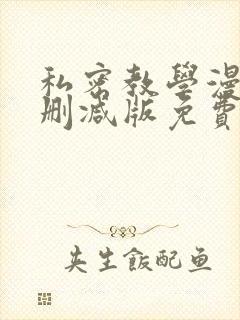 私密教學漫
刪減版免費
失生飯配鱼